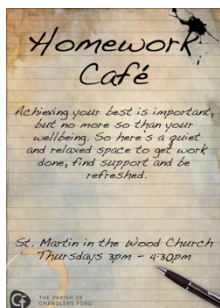 Homework
Café
Achieving your best is important,
but no more so than your
wellbeing. So here s a quiet
and relaxed space to get work
done, find support and be
refreshed.
St. Martin in the Wood Church
Thursdays 3pm - 4:30pm
THE PARISH OF
CHANDLER'S FORD